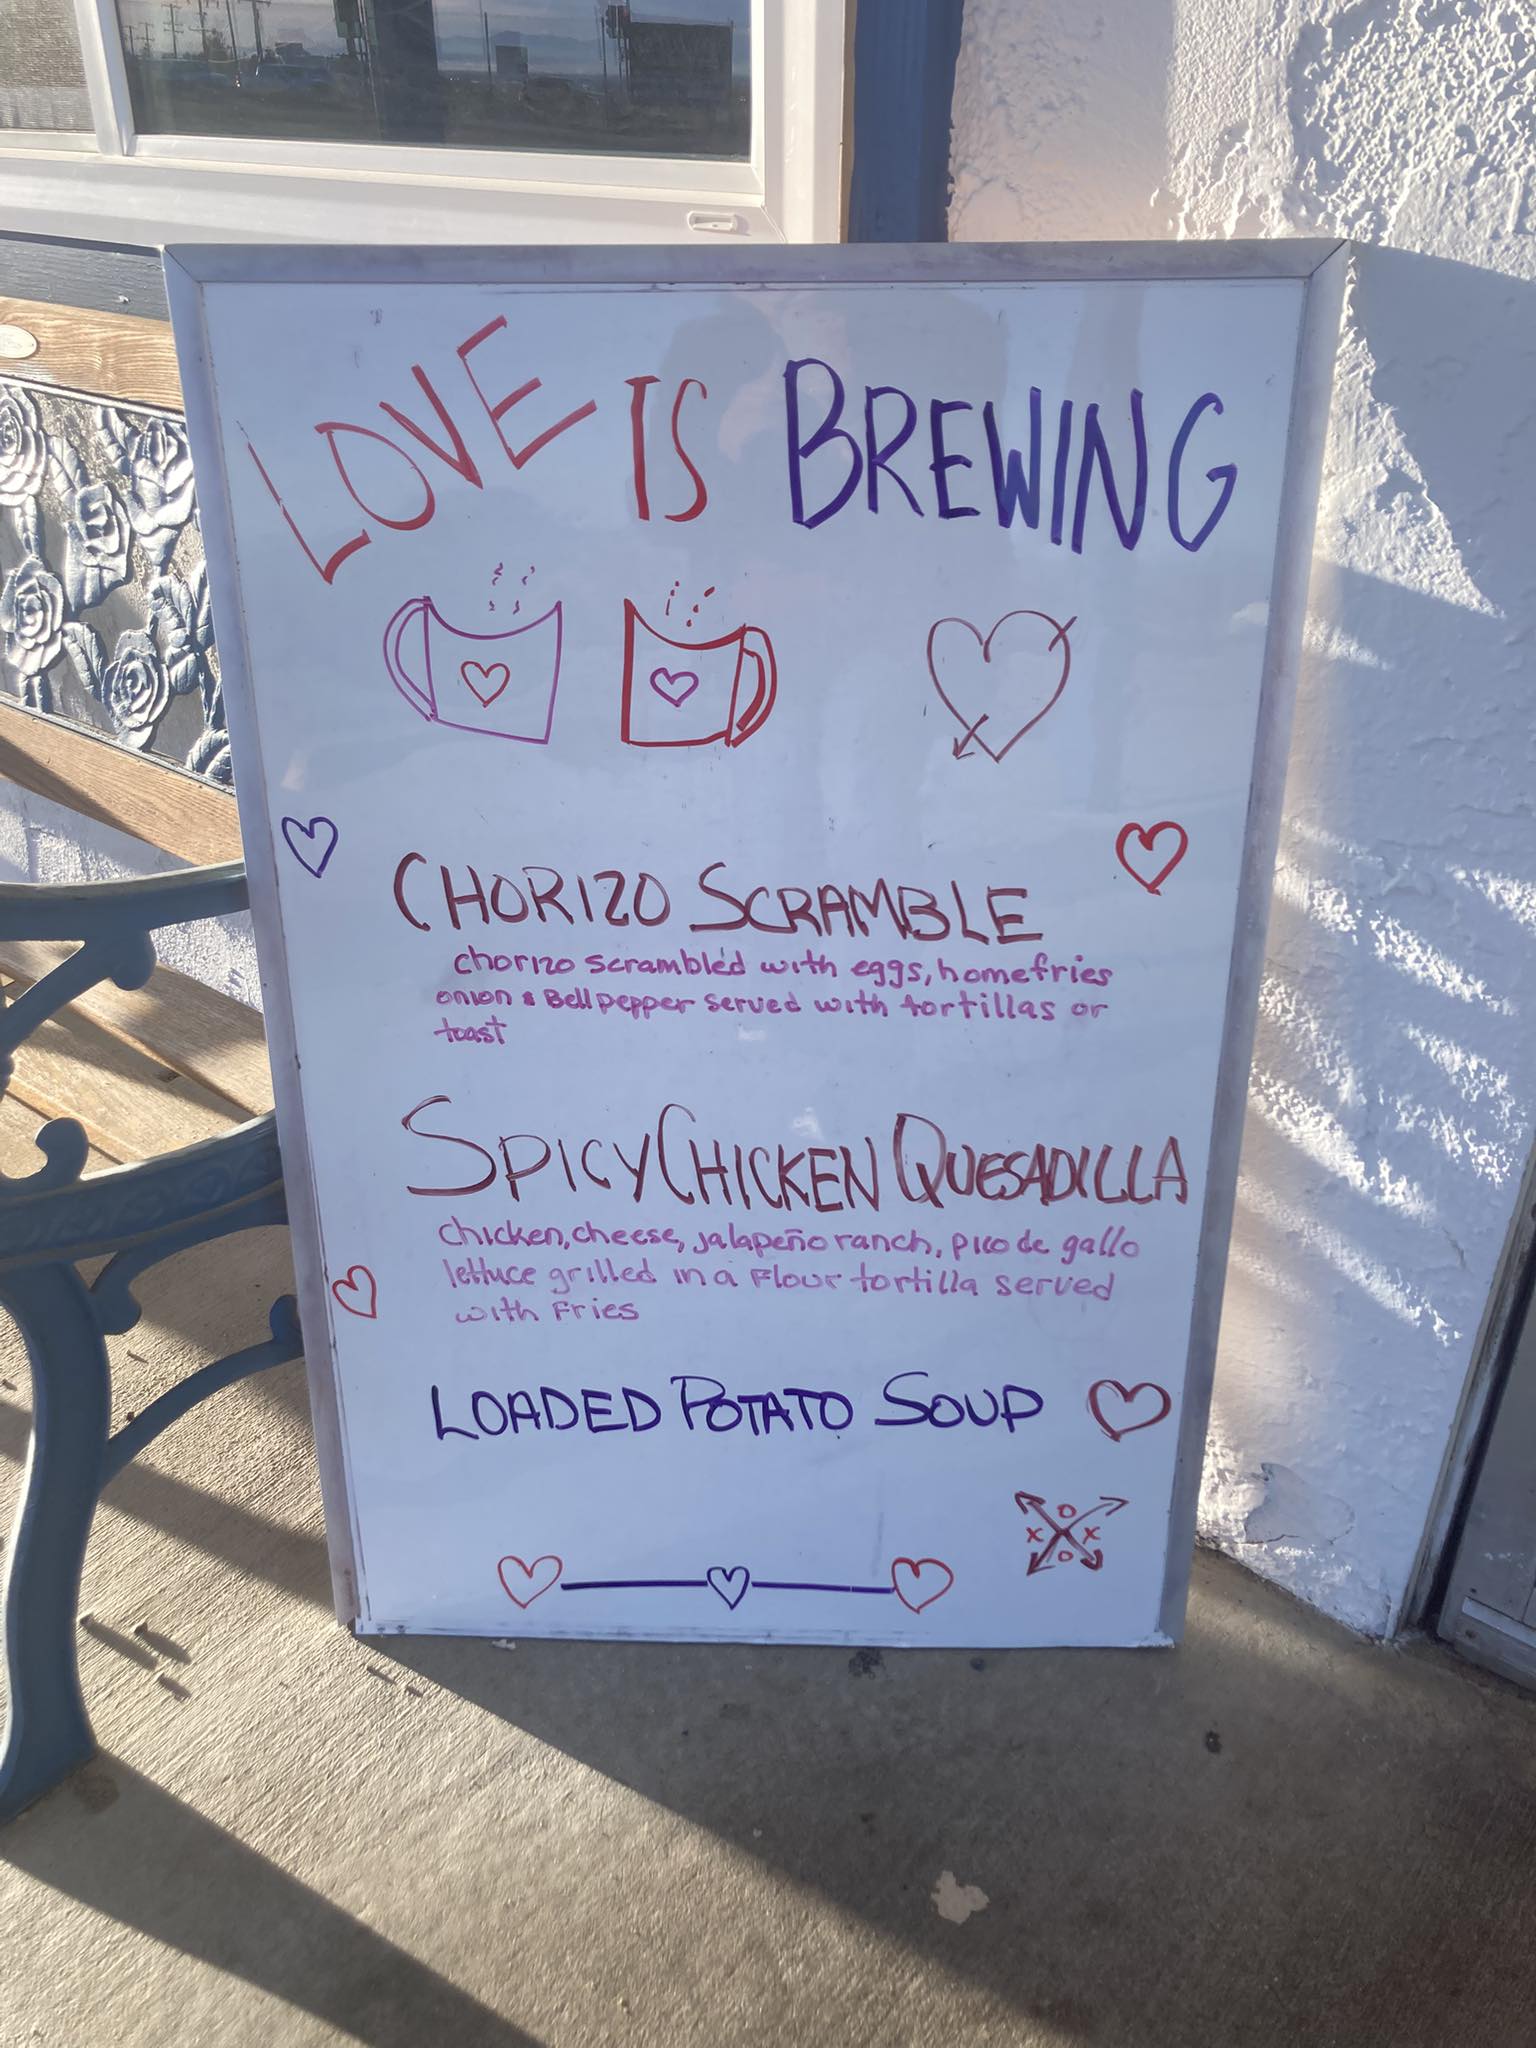 LOVE IS BREWING
CHORIZO SCRAMBLE
chorizo scrambled with eggs, homefries
onion & Bell pepper served with tortillas or
toast
SPICY CHICKEN QUESADILLA
Chicken, cheese, jalapeño ranch, pico de gallo
lettuce grilled in a Flour tortilla served
with Fries
LOADED POTATO SOUP
O
X X
O